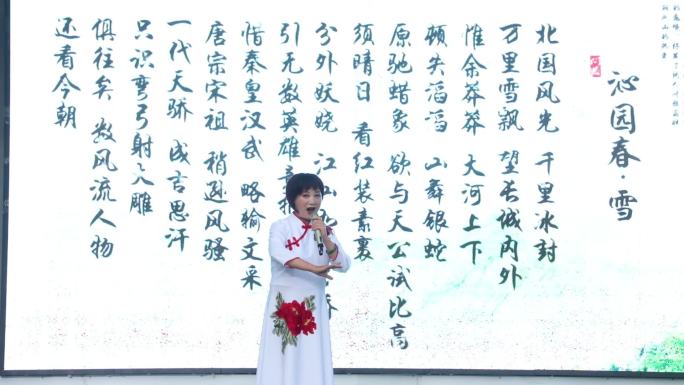 沁园春·雪
北国风光 千里冰封
万里雪飘 望长城内外
惟余莽莽 大河上下
顿失滔滔 山舞银蛇
原驰蜡象 欲与天公试比高
须晴日 看红装素裹
分外妖娆 江山
引无数英雄竞
惜秦皇汉武 略输文采
唐宗宋祖 稍逊风骚
一代天骄 成吉思汗
只识弯弓射大雕
俱往矣 数风流人物
还看今朝